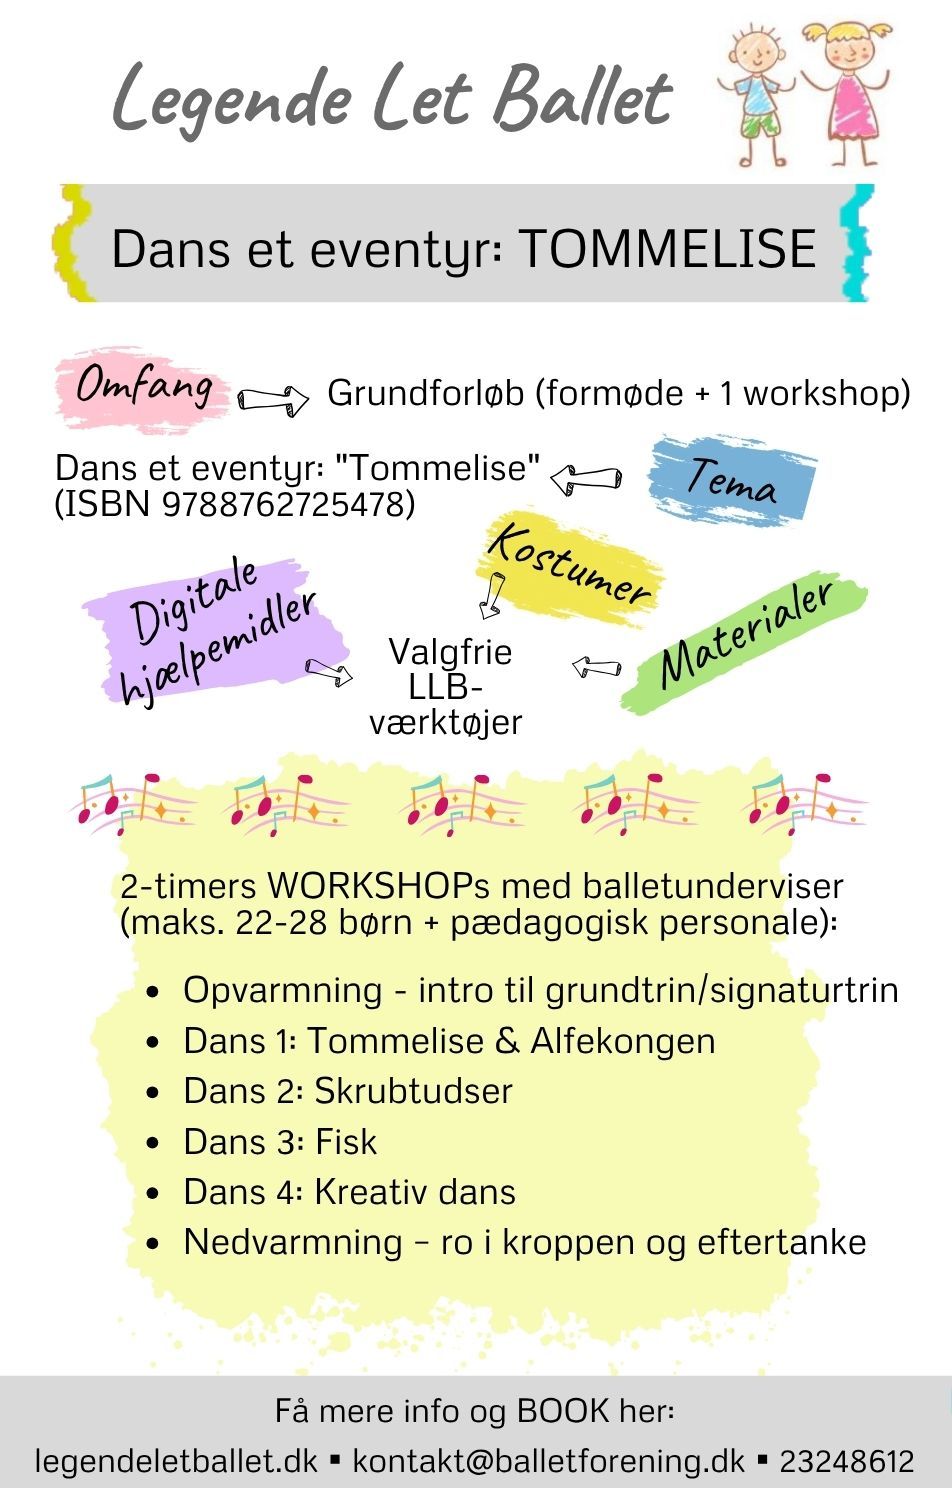 Legende Let Ballet
Dans et eventyr: TOMMELISE
Omfang
Grundforløb (formøde + 1 workshop)
Dans et eventyr: "Tommelise"
(ISBN 9788762725478)
Tema
Kostumer
Digitale
hjælpemidler
Materialer
Valgfrie
LLB-
værktøjer
2-timers WORKSHOPs med balletunderviser
(maks. 22-28 børn + pædagogisk personale):
• Opvarmning - intro til grundtrin/signaturtrin
• Dans 1: Tommelise & Alfekongen
• Dans 2: Skrubtudser
• Dans 3: Fisk
• Dans 4: Kreativ dans
• Nedvarmning – ro i kroppen og eftertanke
Få mere info og BOOK her:
legendeletballet.dk ▪ kontakt@balletforening.dk ▪ 23248612